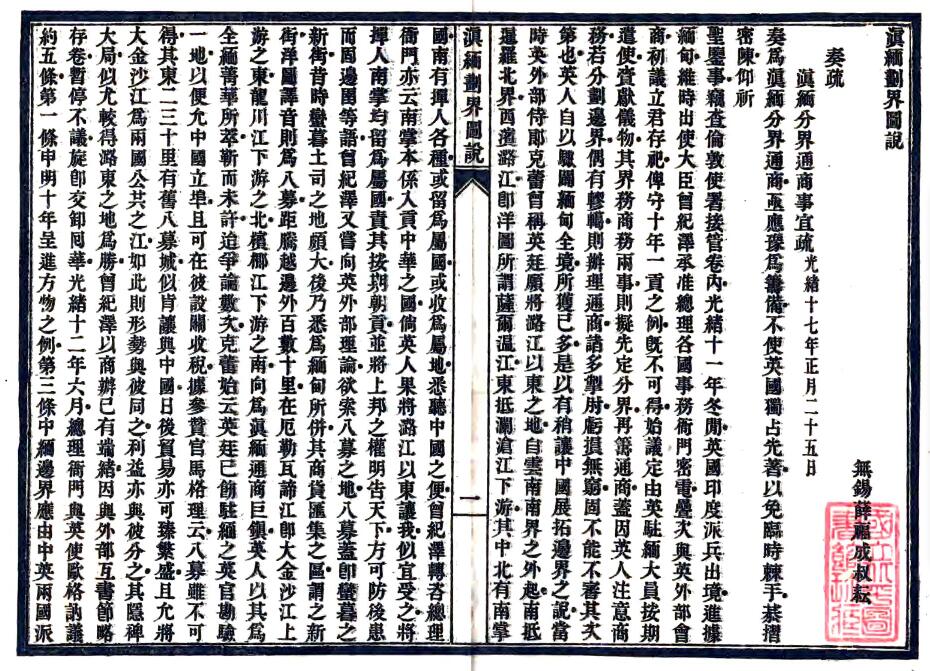 滇緬劃界圖說
無錫薛福成叔耘
奏疏
滇緬分界通商事宜疏光緒十七年正月二十五日
奏爲滇緬分界通商亟應豫爲籌備不使英國獨占先著以免臨時棘手恭摺
密陳仰祈
聖鑒事竊查倫敦使署接管卷內光緒十一年冬閒英國印度派兵出境進據
緬甸維時出使大臣曾紀澤承准總理各國事務衙門密電疊次與英外部會
商初議立君存祀俾守十年一貢之例旣不可得始議定由英駐緬大員按期
遣使賫獻儀物其界務商務兩事則擬先定分界再籌通商蓋因英人注意商
務若分劃邊界偶有轇轕則辦理通商諸多掣肘虧損無窮固不能不審其次
第也英人自以驟闢緬甸全境所獲已多是以有稍讓中國展拓邊界之說當
時英外部侍郎克蕾曾稱英廷願將潞江以東之地自雲南南界之外起南抵
暹羅北界西濱潞江卽洋圖所謂薩爾溫江東抵瀾滄江下游其中北有南掌
滇緬劃界圖說
一
國南有撣人各種或留爲屬國或收爲屬地悉聽中國之便曾紀澤轉咨總理
衙門亦云南掌本係入貢中華之國倘英人果將潞江以東讓我似宜受之將
撣人南掌均留爲屬國責其按期朝貢並將上邦之權明告天下方可防後患
而固邊圉等語曾紀澤又嘗向英外部理論欲索八募之地八募蓋卽蠻暮之
新街昔時蠻暮土司之地頗大後乃悉爲緬甸所併其商貨匯集之區謂之新
街洋圖譯音則爲八募距騰越邊外百數十里在厄勒瓦諦江卽大金沙江上
游之東龍川江下游之北檳榔江下游之南向爲滇緬通商巨鎮英人以其爲
全緬菁華所萃靳而未許迨爭論數次克蕾始云英廷已飭駐緬之英官勘驗
一地以便允中國立埠且可在彼設關收稅據參贊官馬格理云八募雖不可
得其東二三十里有舊八募城似肯讓與中國日後貿易亦可臻繁盛且允將
大金沙江爲兩國公共之江如此則形勢與彼同之利益亦與彼分之其隱裨
大局似尤較得潞東之地爲勝曾紀澤以商辦已有端緒因與外部互書節略
存卷暫停不議旋卽交卸回華光緒十二年六月總理衙門與英使歐格訥議
約五條第一條申明十年呈進方物之例第三條中緬邊界應由中英兩國派